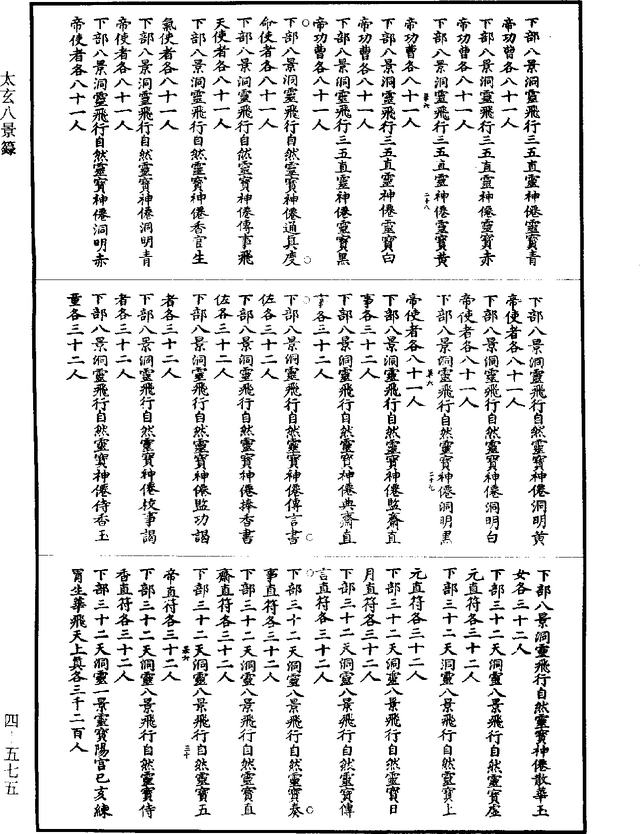 下部八景洞靈飛行三五直靈神僊靈寶青
帝功曹各八十一人
下部八景洞靈飛行三五直靈神僊靈寶赤
帝功曹各八十一人
下部八景洞靈飛行三五直靈神僊靈寶黃
帝功曹各八十一人
下部八景洞靈飛行三五直靈神僊靈寶白
帝功曹各八十一人
下部八景洞靈飛行三五直靈神僊靈寶黑
帝功曹各八十一人
下部八景洞靈飛行自然靈寶神僊通真度
命使者各八十一人
下部八景洞靈飛行自然靈寶神僊傳事飛
天使者各八十一人
下部八景洞靈飛行自然靈寶神僊香官生
氣使者各八十一人
下部八景洞靈飛行自然靈寶神僊洞明青
帝使者各八十一人
下部八景洞靈飛行自然靈寶神僊洞明赤
帝使者各八十一人
下部八景洞靈飛行自然靈寶神僊洞明黃
帝使者各八十一人
下部八景洞靈飛行自然靈寶神僊洞明白
帝使者各八十一人
下部八景洞靈飛行自然靈寶神僊洞明黑
帝使者各八十一人
下部八景洞靈飛行自然靈寶神僊監齋直
事各三十二人
下部八景洞靈飛行自然靈寶神僊典齋直
事各三十二人
下部八景洞靈飛行自然靈寶神僊傳言書
佐各三十二人
下部八景洞靈飛行自然靈寶神僊捧香書
佐各三十二人
下部八景洞靈飛行自然靈寶神僊監功謁
者各三十二人
下部八景洞靈飛行自然靈寶神僊校事謁
者各三十二人
下部八景洞靈飛行自然靈寶神僊侍香玉
童各三十二人
下部八景洞靈飛行自然靈寶神僊散華玉
女各三十二人
下部三十二天洞靈八景飛行自然靈寶虛
元直符各三十二人
下部三十二天洞靈八景飛行自然靈寶上
元直符各三十二人
下部三十二天洞靈八景飛行自然靈寶日
月直符各三十二人
下部三十二天洞靈八景飛行自然靈寶傳
言直符各三十二人
下部三十二天洞靈八景飛行自然靈寶奏
事直符各三十二人
下部三十二天洞靈八景飛行自然靈寶直
齋直符各三十二人
下部三十二天洞靈八景飛行自然靈寶五
帝直符各三十二人
下部三十二天洞靈八景飛行自然靈寶侍
香直符各三十二人
下部三十二天洞靈一景靈寶陽宮已亥練
胃生華飛天上真各三千二百人
太玄八景籙
四-五七五